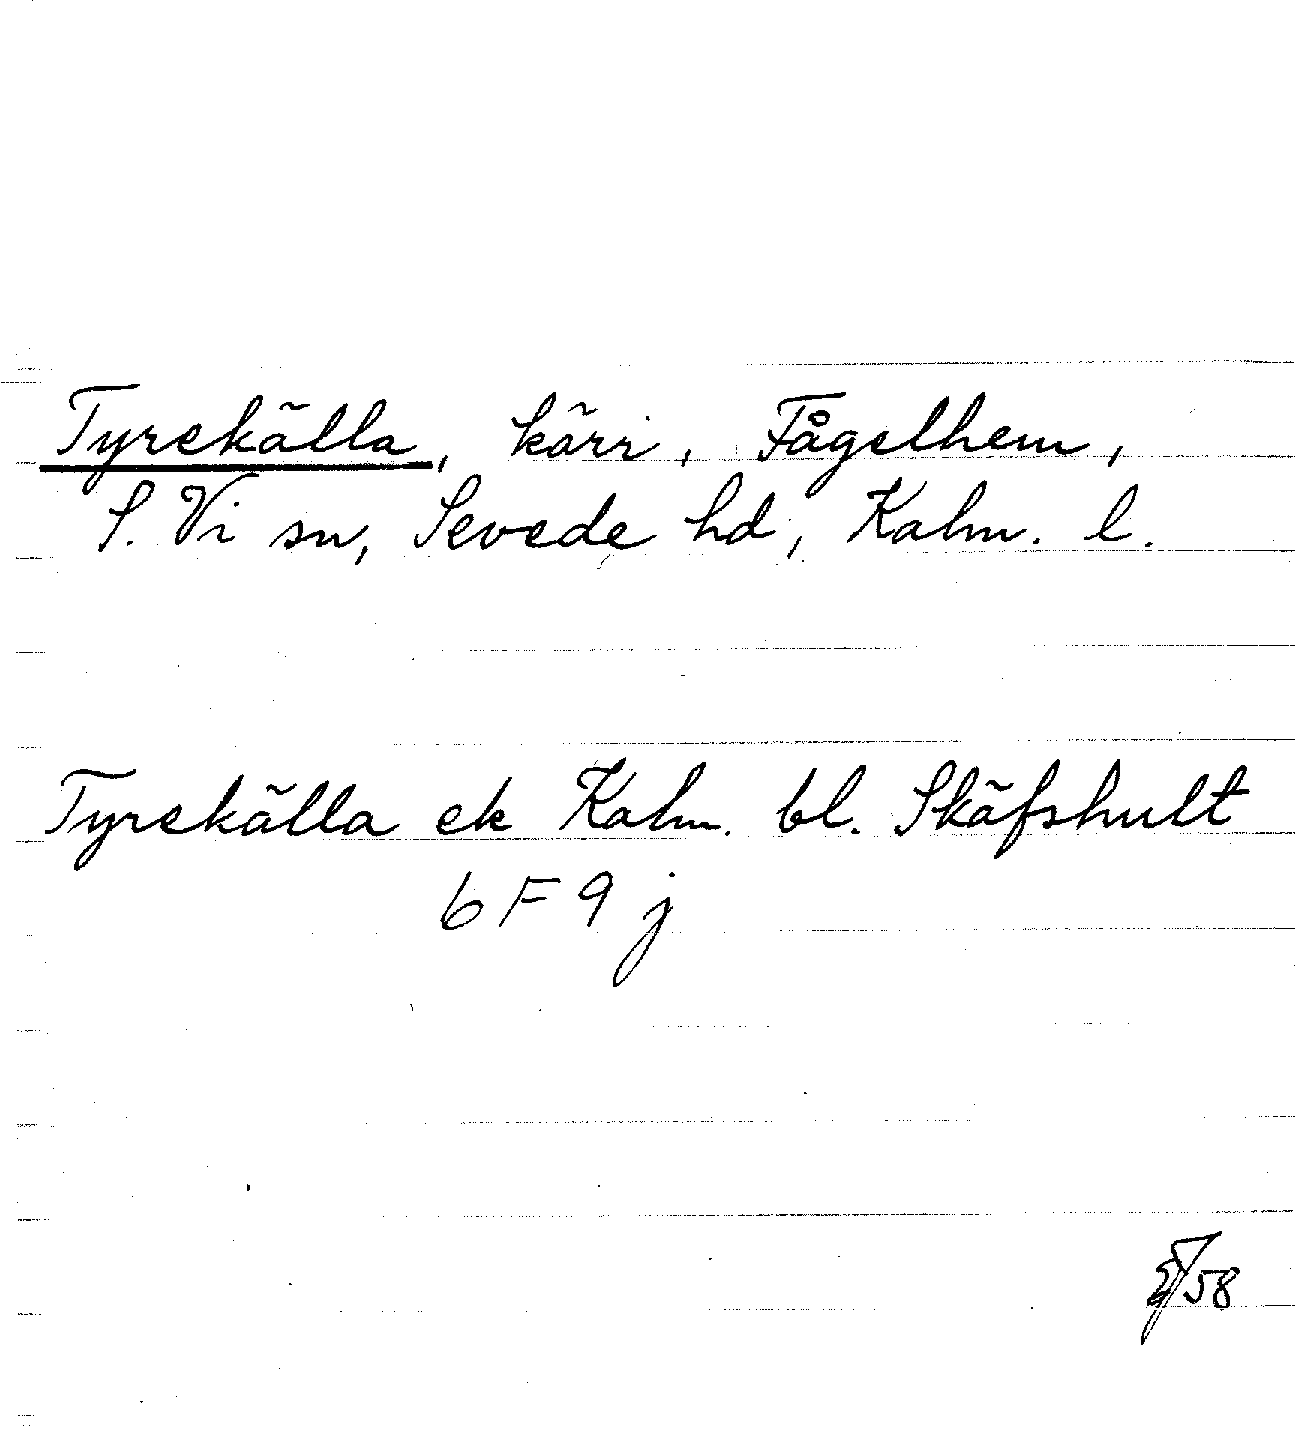 Tyrekälla, kärr, Fågelhem,
S. Vi sn, Sevede hd, Kalm. l.
Tyrekälla ek Kalm. bl. Skäfshult
6 F 9 j
/58